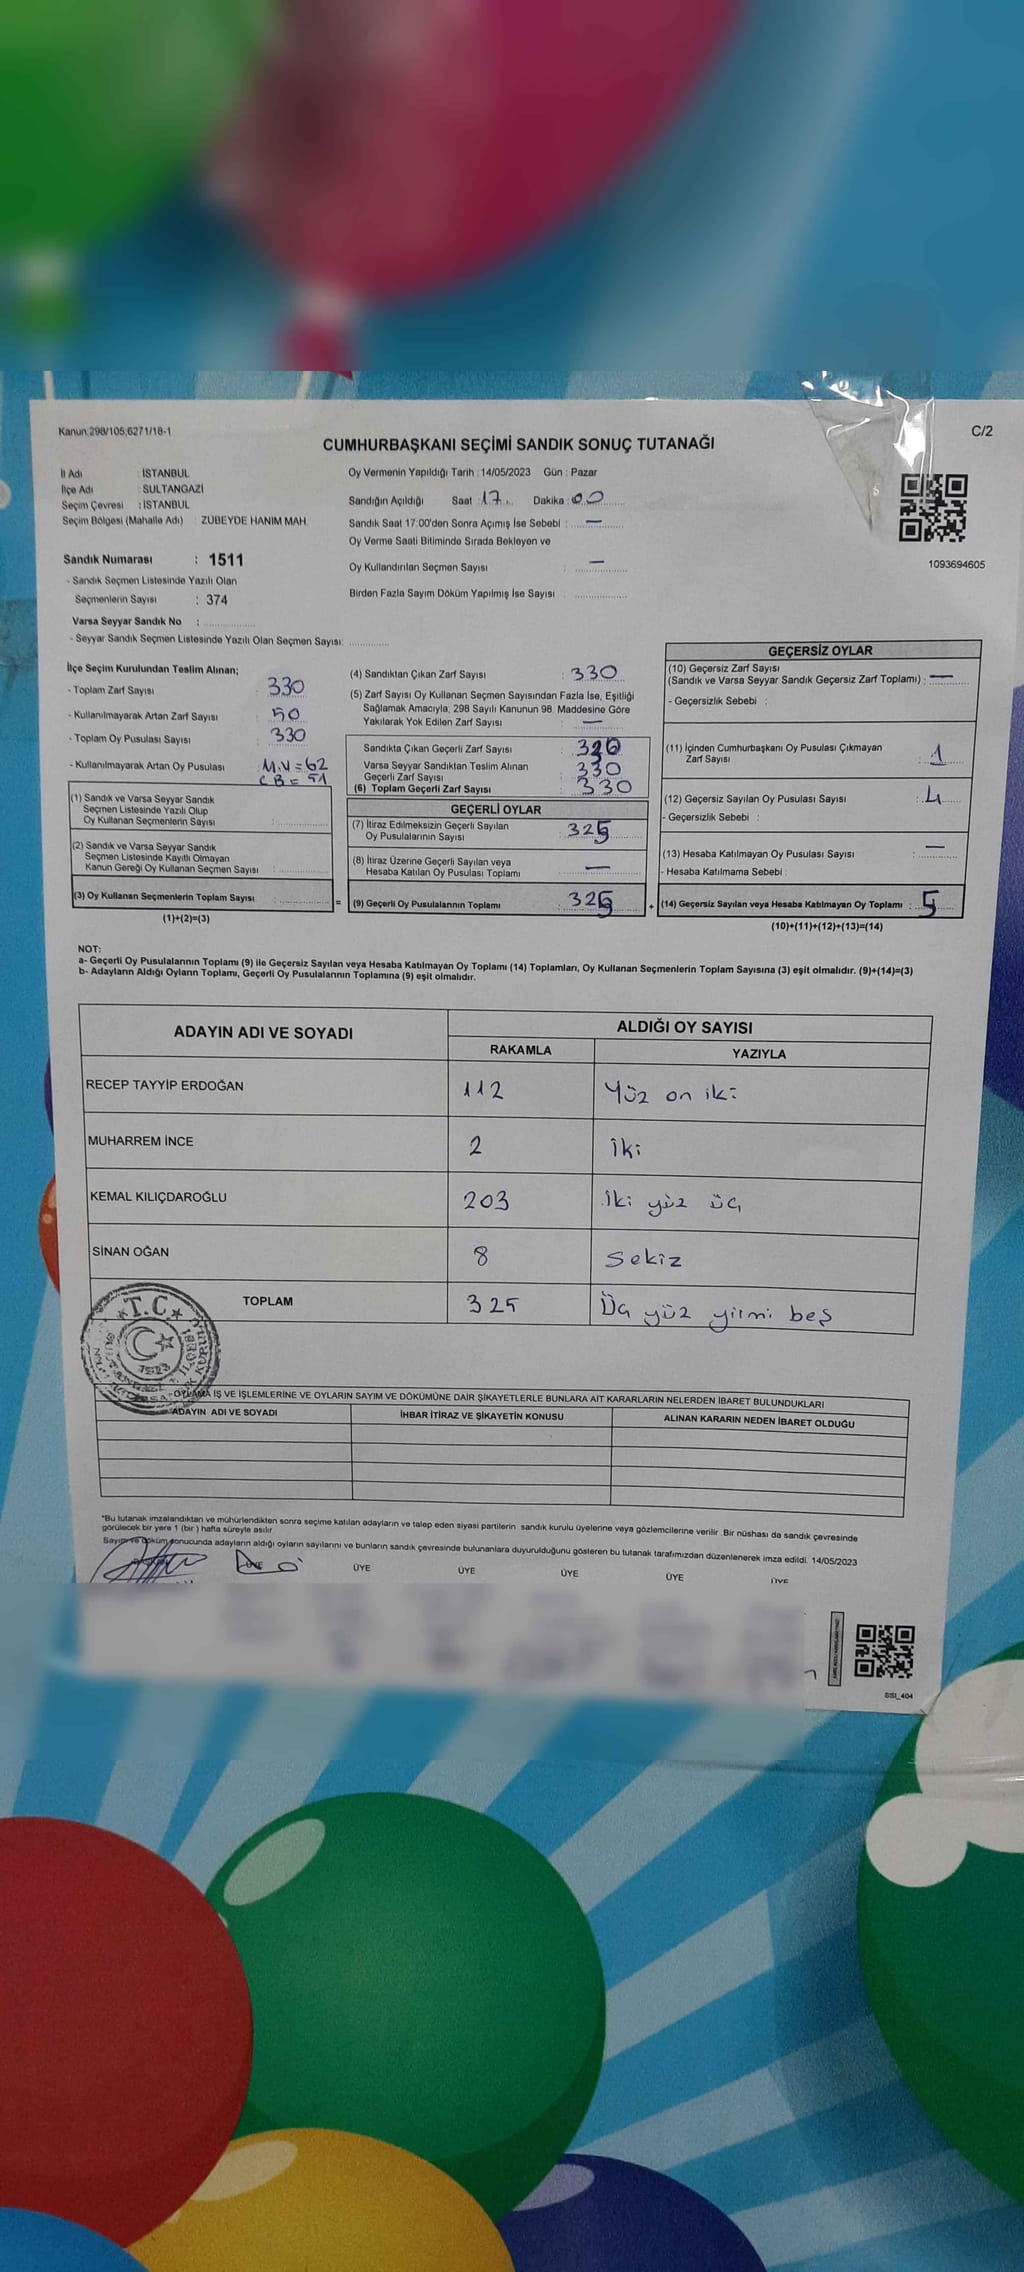 Kanun:298/105;6271/18-1
C/2
CUMHURBAŞKANI SEÇİMİ SANDIK SONUÇ TUTANAĞI
İl Adı : İSTANBUL
İlçe Adı : SULTANGAZİ
Seçim Çevresi : İSTANBUL
Seçim Bölgesi (Mahalle Adı) ZÜBEYDE HANIM MAH.
Sandık Numarası : 1511
- Sandık Seçmen Listesinde Yazılı Olan
Seçmenlerin Sayısı : 374
Varsa Seyyar Sandık No :
- Seyyar Sandık Seçmen Listesinde Yazılı Olan Seçmen Sayısı:
Oy Vermenin Yapıldığı Tarih : 14/05/2023 Gün : Pazar
Sandığın Açıldığı Saat : 17 Dakika : 00
Sandık Saat 17:00'den Sonra Açımış İse Sebebi : —
Oy Verme Saati Bitiminde Sırada Bekleyen ve
Oy Kullandırılan Seçmen Sayısı : —
Birden Fazla Sayım Döküm Yapılmış İse Sayısı :
1093694605
İlçe Seçim Kurulundan Teslim Alınan;
- Toplam Zarf Sayısı : 330
- Kullanılmayarak Artan Zarf Sayısı : 50
- Toplam Oy Pusulası Sayısı : 330
- Kullanılmayarak Artan Oy Pusulası : M.V = 62
CB = 51
(1) Sandık ve Varsa Seyyar Sandık
Seçmen Listesinde Yazılı Olup
Oy Kullanan Seçmenlerin Sayısı :
(2) Sandık ve Varsa Seyyar Sandık
Seçmen Listesinde Kayıtlı Olmayan
Kanun Gereği Oy Kullanan Seçmen Sayısı :
(3) Oy Kullanan Seçmenlerin Toplam Sayısı :
(1)+(2)=(3)
(4) Sandıktan Çıkan Zarf Sayısı : 330
(5) Zarf Sayısı Oy Kullanan Seçmen Sayısından Fazla İse, Eşitliği
Sağlamak Amacıyla, 298 Sayılı Kanunun 98. Maddesine Göre
Yakılarak Yok Edilen Zarf Sayısı : —
Sandıkta Çıkan Geçerli Zarf Sayısı :
Varsa Seyyar Sandıktan Teslim Alınan
Geçerli Zarf Sayısı : 330
(6) Toplam Geçerli Zarf Sayısı : 330
GEÇERLİ OYLAR
(7) İtiraz Edilmeksizin Geçerli Sayılan
Oy Pusulalarının Sayısı : 325
(8) İtiraz Üzerine Geçerli Sayılan veya
Hesaba Katılan Oy Pusulası Toplamı : —
= (9) Geçerli Oy Pusulalarının Toplamı : 325
GEÇERSİZ OYLAR
(10) Geçersiz Zarf Sayısı
(Sandık ve Varsa Seyyar Sandık Geçersiz Zarf Toplamı) : —
- Geçersizlik Sebebi :
(11) İçinden Cumhurbaşkanı Oy Pusulası Çıkmayan
Zarf Sayısı : 1
(12) Geçersiz Sayılan Oy Pusulası Sayısı : 4
- Geçersizlik Sebebi :
(13) Hesaba Katılmayan Oy Pusulası Sayısı : —
- Hesaba Katılmama Sebebi :
+ (14) Geçersiz Sayılan veya Hesaba Katılmayan Oy Toplamı : 5
(10)+(11)+(12)+(13)=(14)
NOT:
a- Geçerli Oy Pusulalarının Toplamı (9) ile Geçersiz Sayılan veya Hesaba Katılmayan Oy Toplamı (14) Toplamları, Oy Kullanan Seçmenlerin Toplam Sayısına (3) eşit olmalıdır. (9)+(14)=(3)
b- Adayların Aldığı Oyların Toplamı, Geçerli Oy Pusulalarının Toplamına (9) eşit olmalıdır.
ADAYIN ADI VE SOYADI
ALDIĞI OY SAYISI
RAKAMLA YAZIYLA
RECEP TAYYİP ERDOĞAN 112 Yüz on iki
MUHARREM İNCE 2 İki
KEMAL KILIÇDAROĞLU 203 İki yüz üç
SİNAN OĞAN 8 Sekiz
TOPLAM 325 Üç yüz yirmi beş
T.C
OYLAMA İŞ VE İŞLEMLERİNE VE OYLARIN SAYIM VE DÖKÜMÜNE DAİR ŞİKAYETLERLE BUNLARA AİT KARARLARIN NELERDEN İBARET BULUNDUKLARI
ADAYIN ADI VE SOYADI İHBAR İTİRAZ VE ŞİKAYETİN KONUSU ALINAN KARARIN NEDEN İBARET OLDUĞU
*Bu tutanak imzalandıktan ve mühürlendikten sonra seçime katılan adayların ve talep eden siyasi partilerin sandık kurulu üyelerine veya gözlemcilerine verilir. Bir nüshası da sandık çevresinde
görülecek bir yere 1 (bir) hafta süreyle asılır.
Sayım ve döküm sonucunda adayların aldığı oyların sayılarını ve bunların sandık çevresinde bulunanlara duyurulduğunu gösteren bu tutanak tarafımızdan düzenlenerek imza edildi. 14/05/2023
ÜYE ÜYE ÜYE ÜYE ÜYE ÜYE
SISI_404